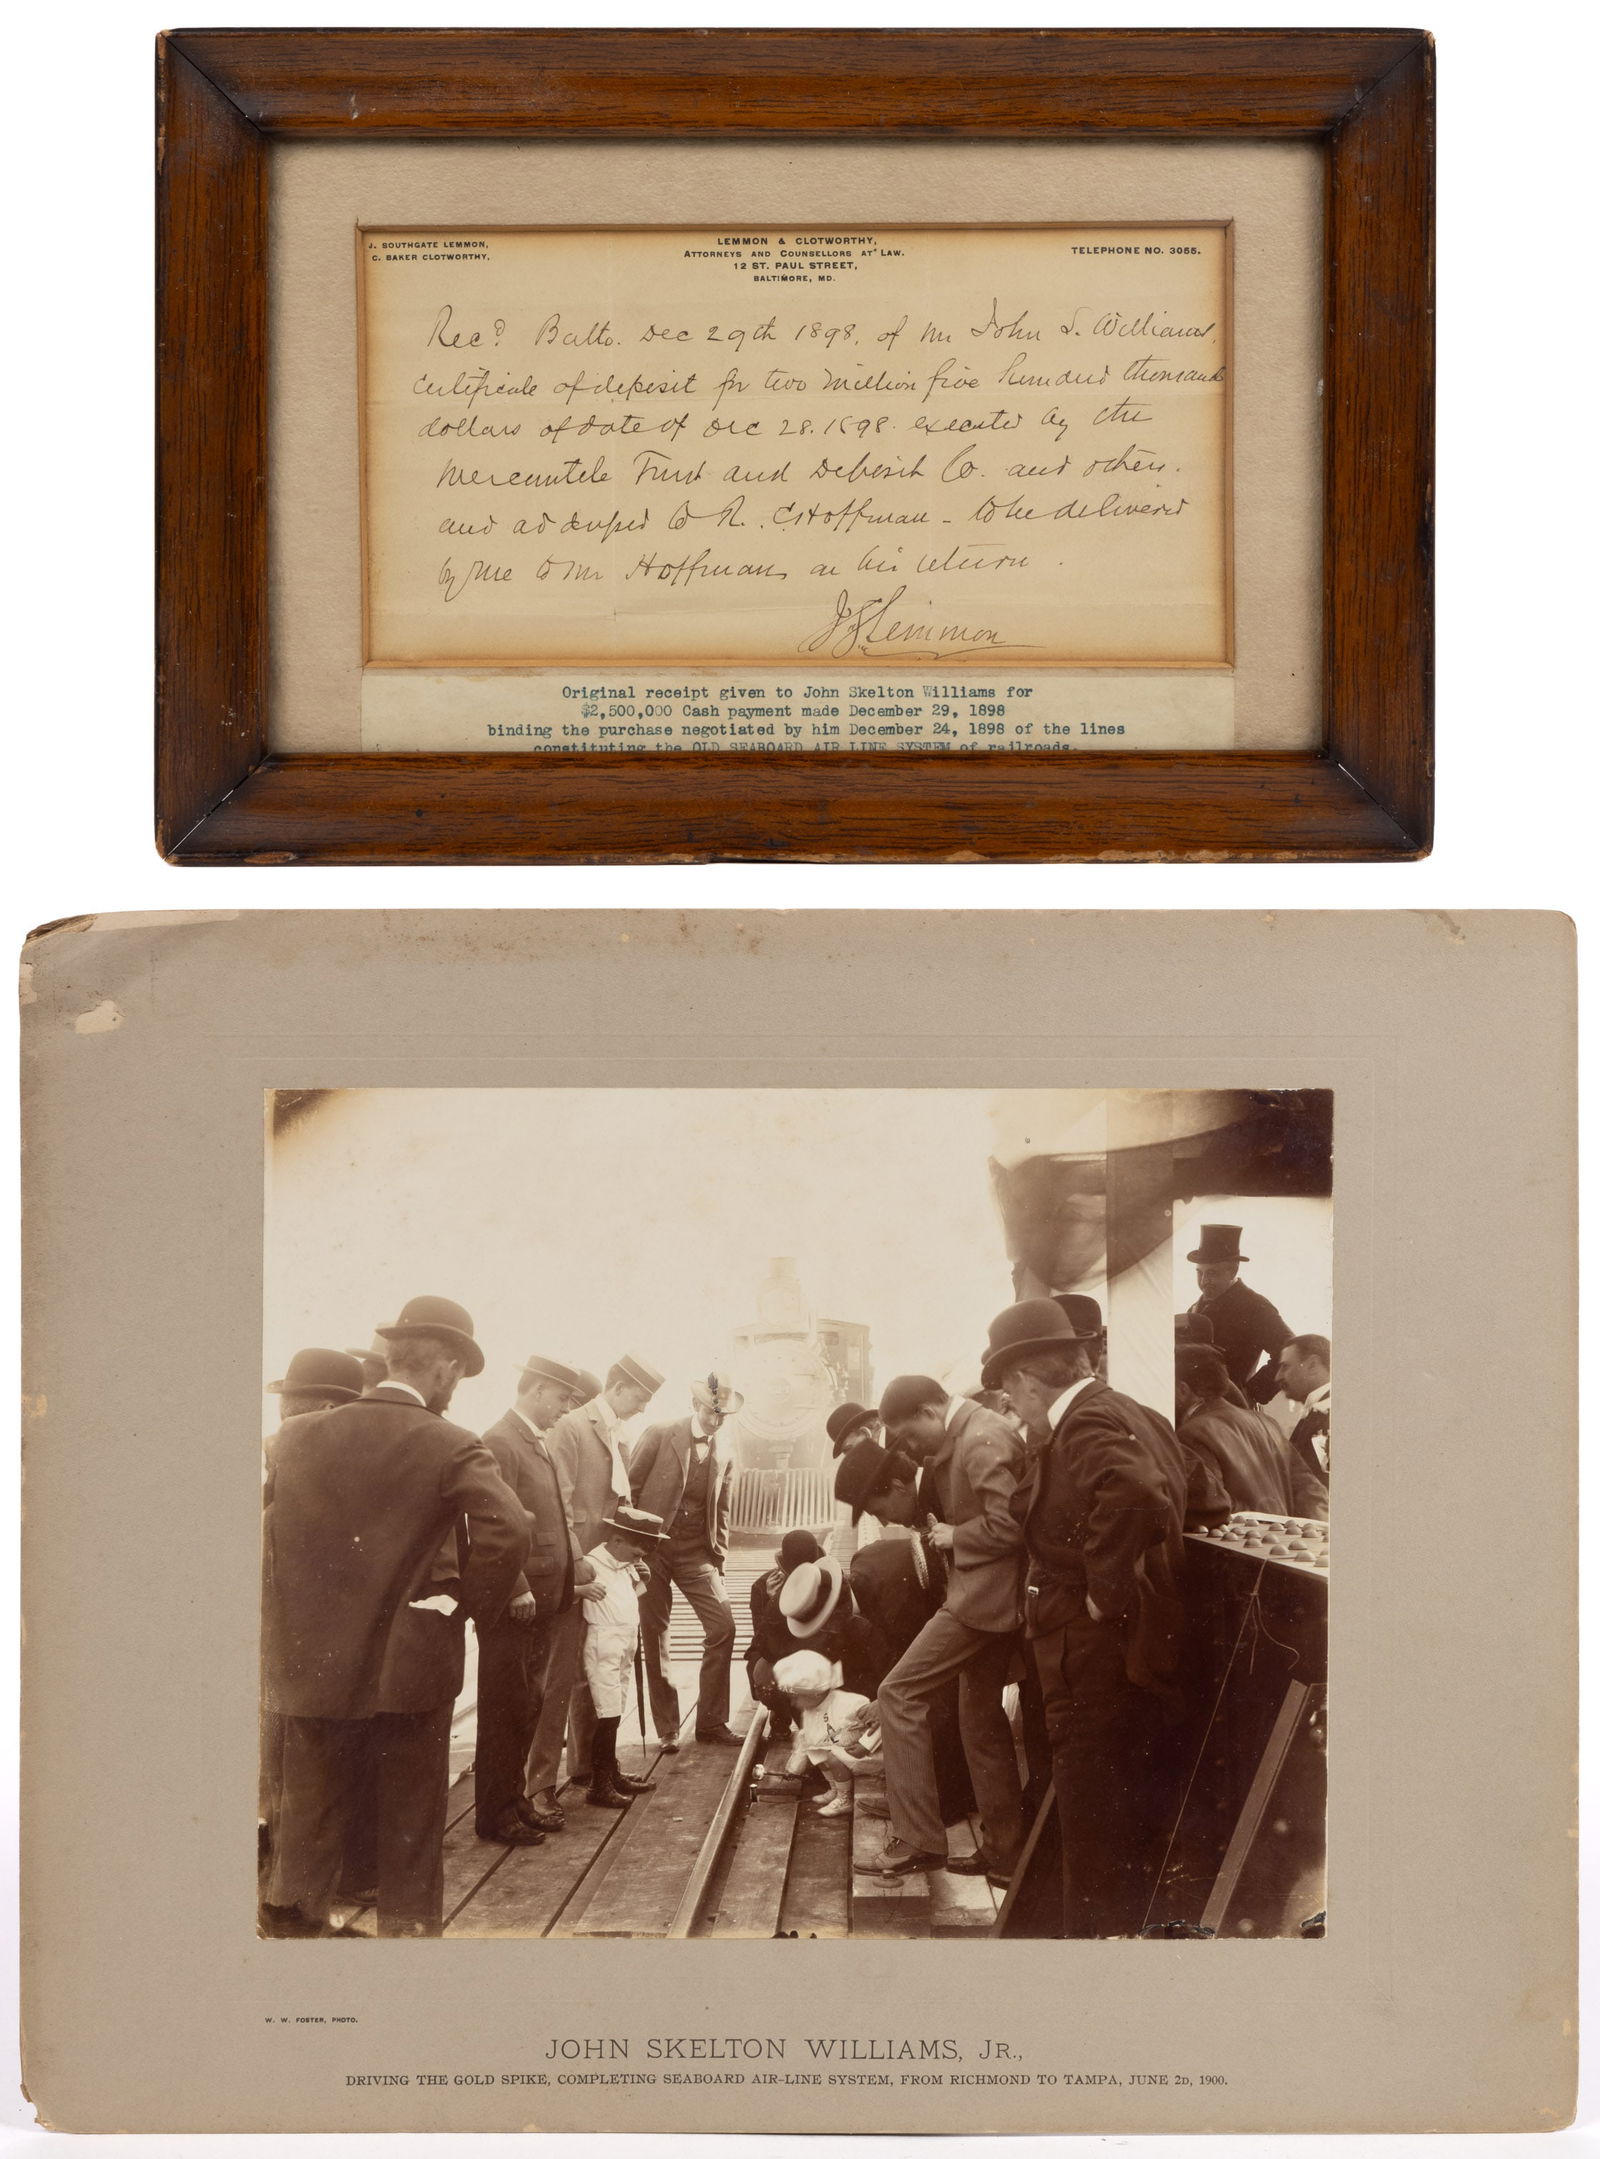 J. SOUTHGATE LEMMON,
C. BAKER CLOTWORTHY,
LEMMON & CLOTWORTHY,
ATTORNEYS AND COUNSELLORS AT LAW.
12 ST. PAUL STREET,
BALTIMORE, MD.
TELEPHONE NO. 3055.
Recd. Balto. Dec 29th 1898. of Mr John S. Williams,
certificate of deposit for two million five hundred thousand
dollars of date of Dec 28. 1898. executed by the
Mercantile Trust and Deposit Co. and others.
and addressed to R. C Hoffman - to be delivered
by me to Mr Hoffman on his return.
J S Lemmon
Original receipt given to John Skelton Williams for
$2,500,000 Cash payment made December 29, 1898
binding the purchase negotiated by him December 24, 1898 of the lines
constituting the OLD SEABOARD AIR LINE SYSTEM of railroads.
W. W. FOSTER, PHOTO.
JOHN SKELTON WILLIAMS, JR.,
DRIVING THE GOLD SPIKE, COMPLETING SEABOARD AIR-LINE SYSTEM, FROM RICHMOND TO TAMPA, JUNE 2D, 1900.